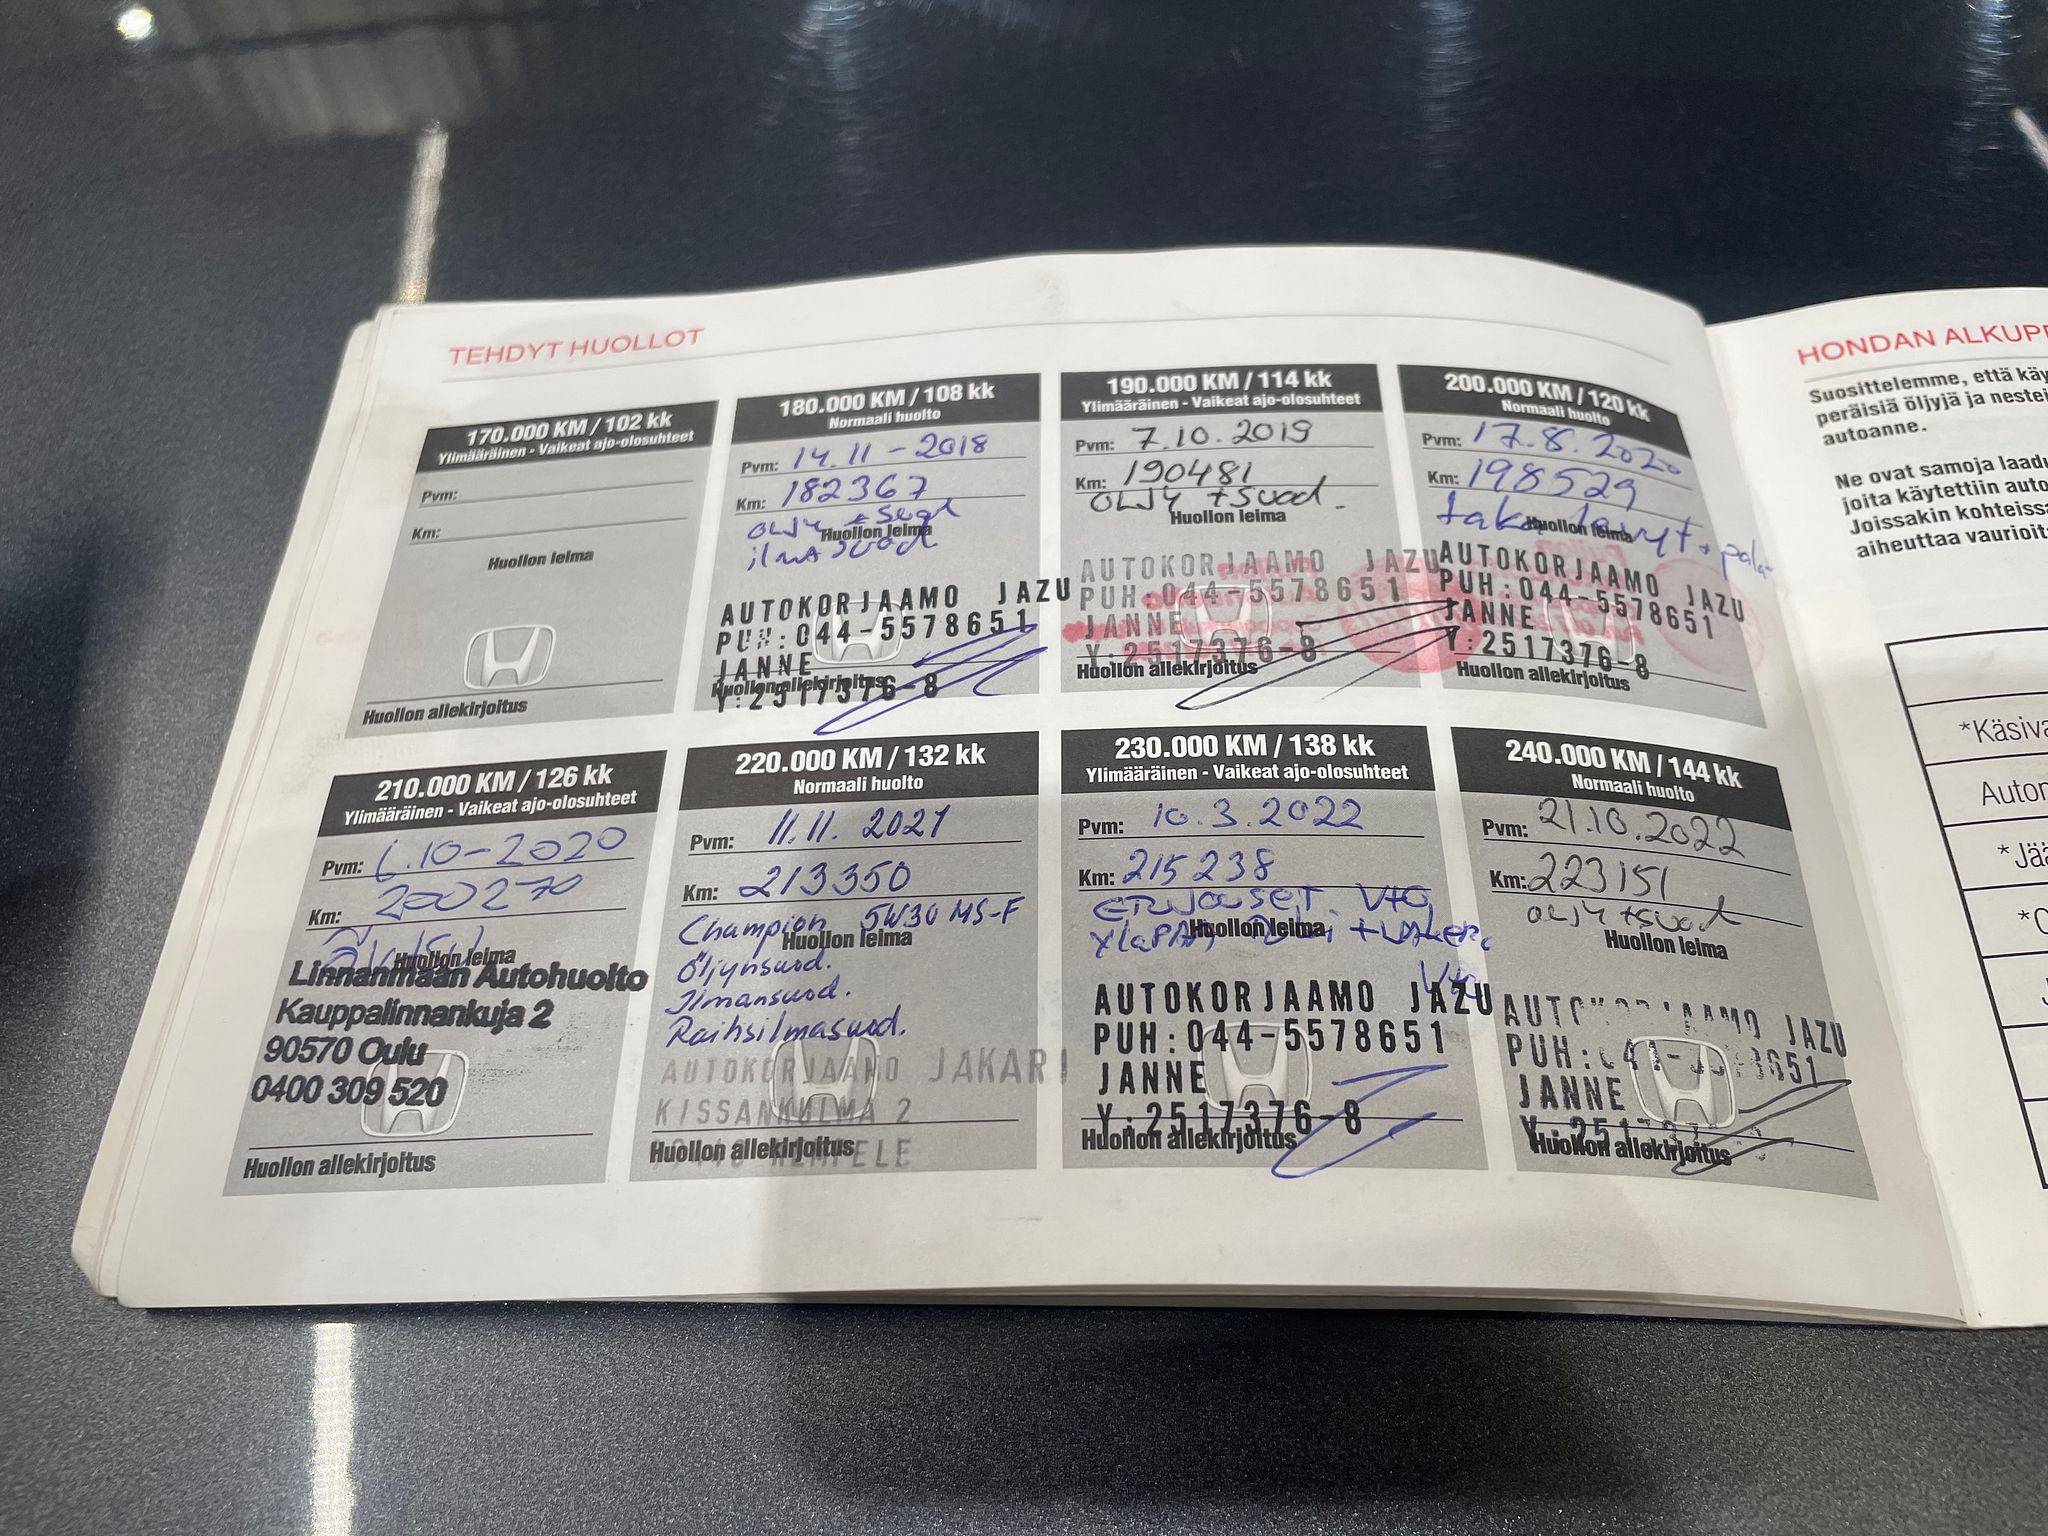 TEHDYT HUOLLOT
170.000 KM / 102 kk
Ylimääräinen - Vaikeat ajo-olosuhteet
Pvm:
Km:
Huollon leima
Huollon allekirjoitus
180.000 KM / 108 kk
Normaali huolto
Pvm: 14.11-2018
Km: 182367
ÖLJY + suod
Huollon leima
ilmasuod
AUTOKORJAAMO JAZU
PUH:044-5578651
JANNE
Huollon allekirjoitus
Y:2517376-8
190.000 KM / 114 kk
Ylimääräinen - Vaikeat ajo-olosuhteet
Pvm: 7.10.2019
Km: 190481
ÖLJY + suod.
Huollon leima
AUTOKORJAAMO JAZU
PUH:044-5578651
JANNE
Y:2517376-8
Huollon allekirjoitus
200.000 KM / 120 kk
Normaali huolto
Pvm: 17.8.2020
Km: 198529
Huollon leima
AUTOKORJAAMO JAZU
PUH:044-5578651
JANNE
Y:2517376-8
Huollon allekirjoitus
210.000 KM / 126 kk
Ylimääräinen - Vaikeat ajo-olosuhteet
Pvm: 6.10-2020
Km: 200270
Huollon leima
Linnanmaan Autohuolto
Kauppalinnankuja 2
90570 Oulu
0400 309 520
Huollon allekirjoitus
220.000 KM / 132 kk
Normaali huolto
Pvm: 11.11.2021
Km: 213350
Champion 5W30 MS-F
Huollon leima
Öljynsuod.
Ilmansuod.
Raitisilmasuod.
AUTOKORJAAMO JAKARI
KISSANKULMA 2
KEMPELE
Huollon allekirjoitus
230.000 KM / 138 kk
Ylimääräinen - Vaikeat ajo-olosuhteet
Pvm: 10.3.2022
Km: 215238
ETUJOUSET V+O
Huollon leima
V+O
AUTOKORJAAMO JAZU
PUH:044-5578651
JANNE
Y:2517376-8
Huollon allekirjoitus
240.000 KM / 144 kk
Normaali huolto
Pvm: 21.10.2022
Km: 223151
ÖLJY + suod
Huollon leima
AUTOKORJAAMO JAZU
PUH:044-5578651
JANNE
Huollon allekirjoitus
HONDAN ALKUPE
Suosittelemme, että käy
peräisiä öljyjä ja nestei
autoanne.
Ne ovat samoja laadu
joita käytettiin auto
Joissakin kohteissa
aiheuttaa vaurioit
*Käsiva
Autom
*Jää